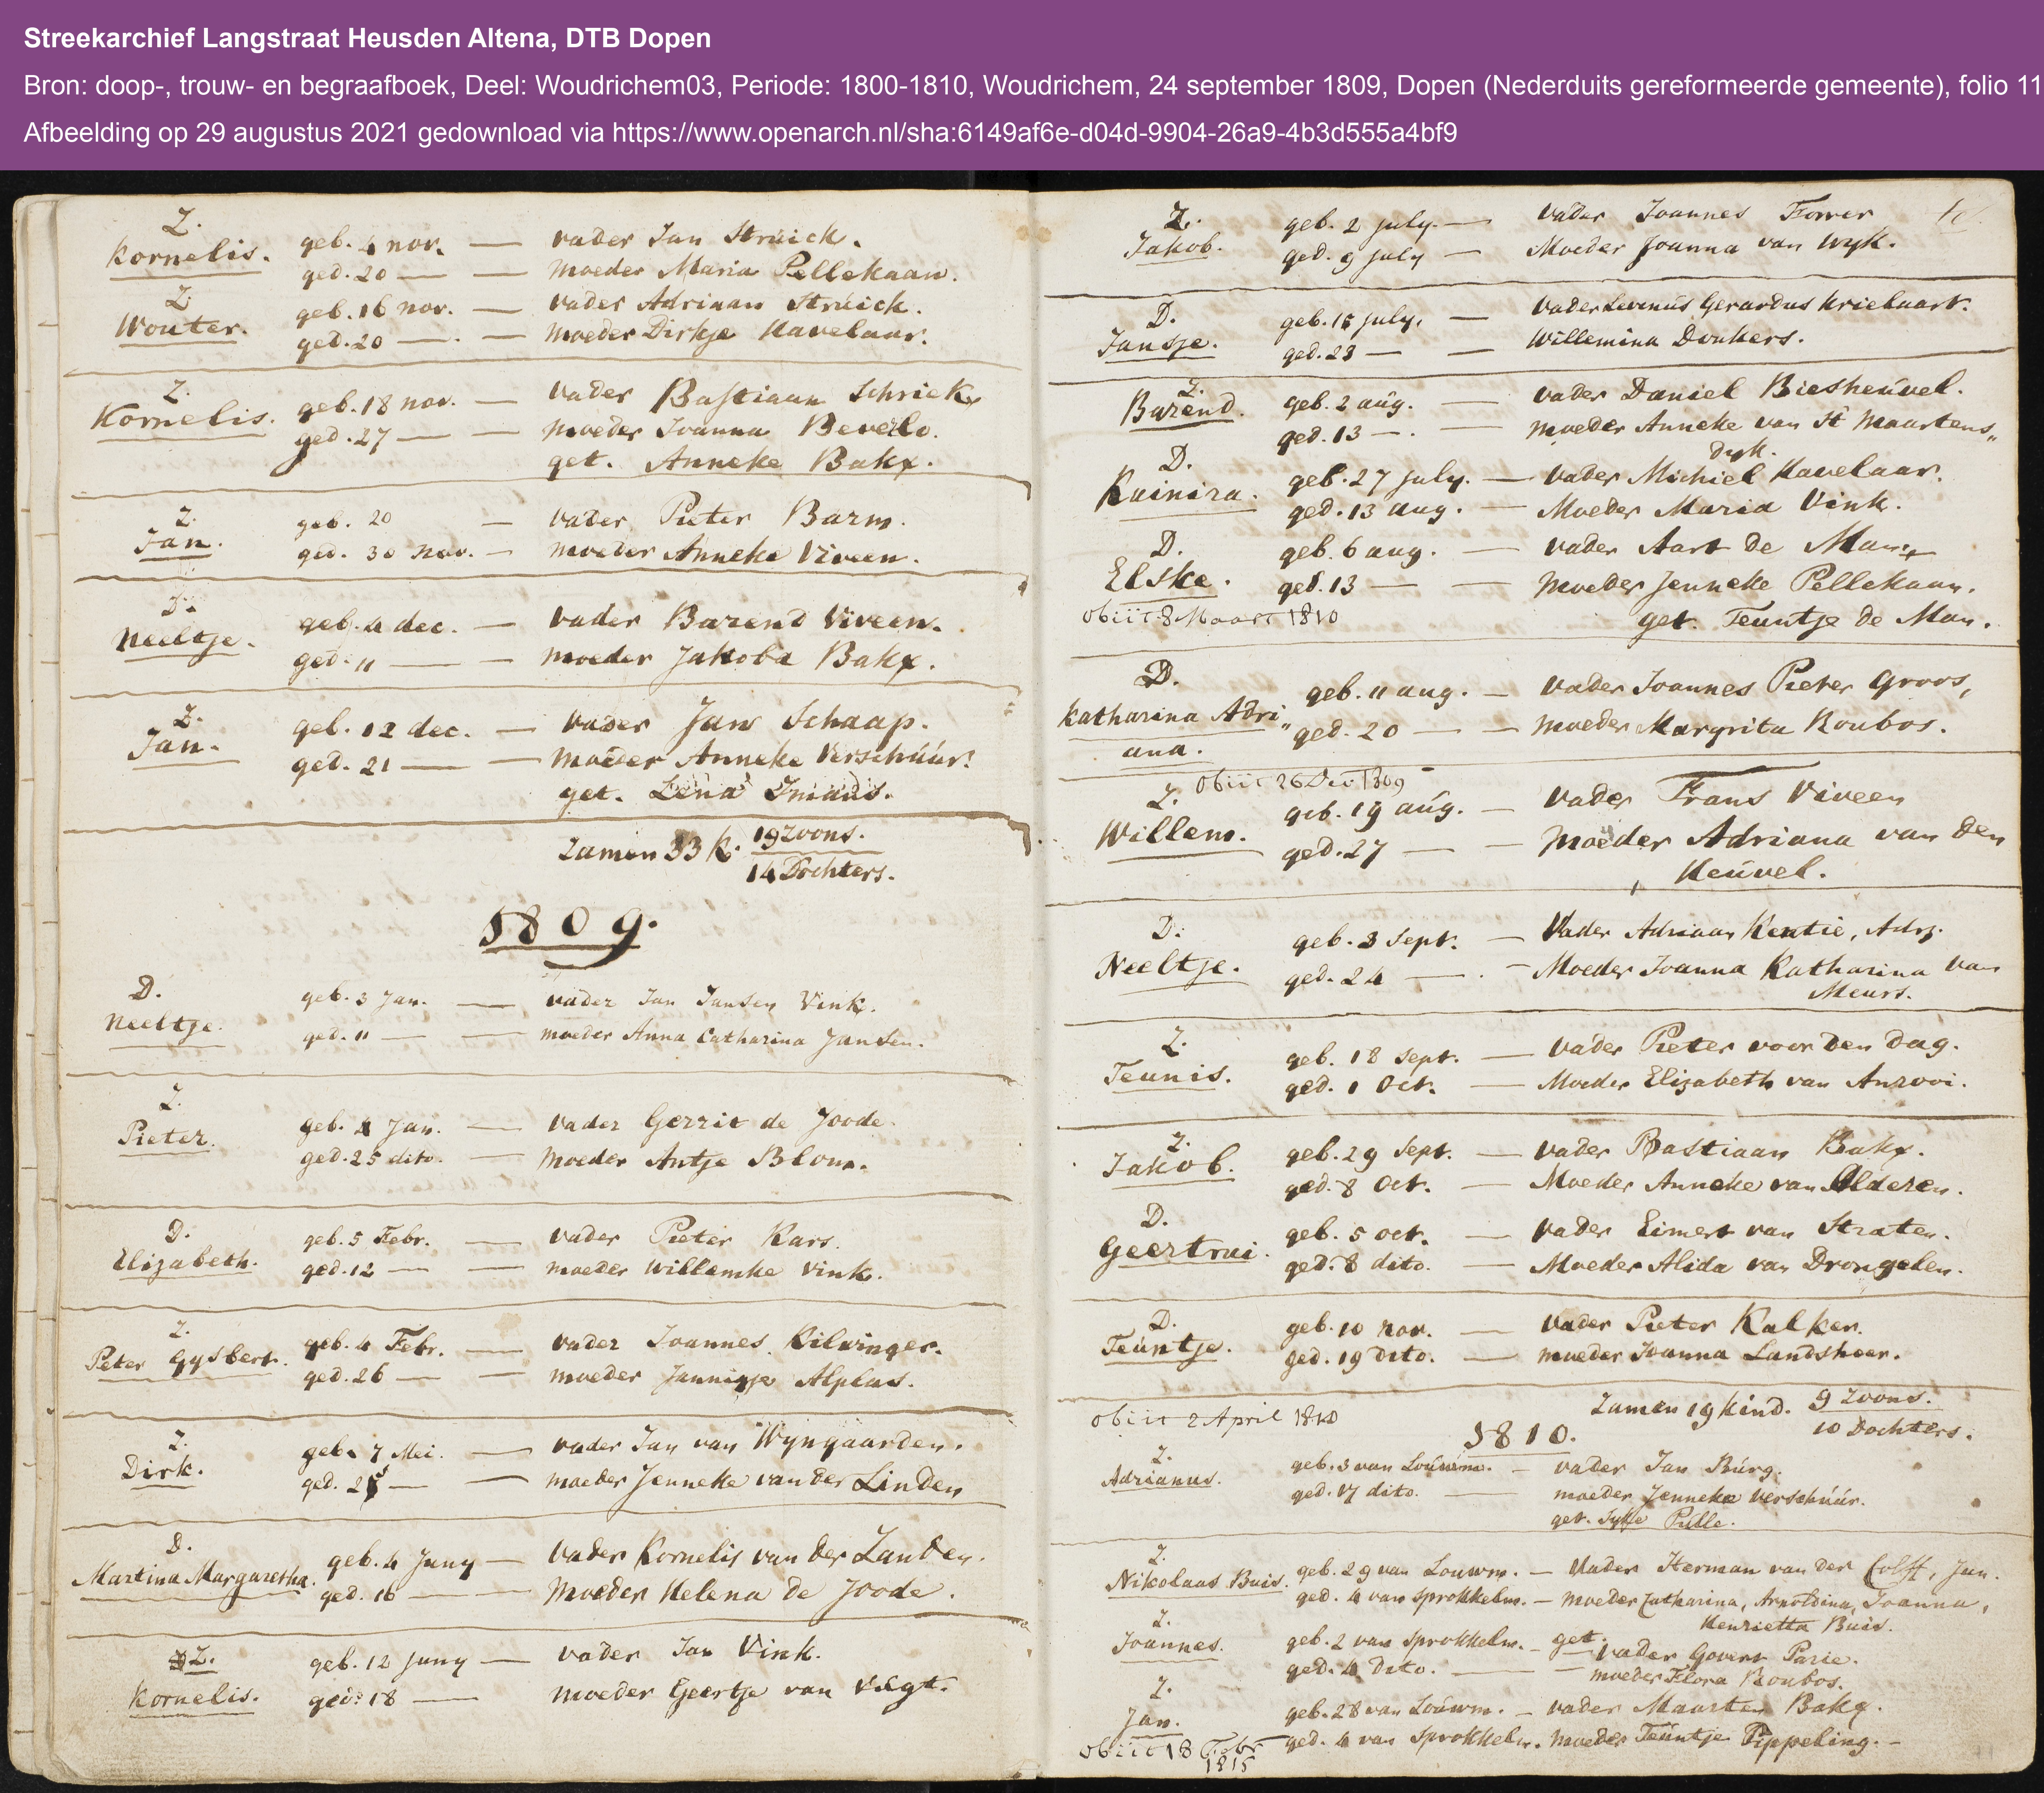 Streekarchief Langstraat Heusden Altena, DTB Dopen
Bron: doop-, trouw- en begraafboek, Deel: Woudrichem03, Periode: 1800-1810, Woudrichem, 24 september 1809, Dopen (Nederduits gereformeerde gemeente), folio 11
Afbeelding op 29 augustus 2021 gedownload via https://www.openarch.nl/sha:6149af6e-d04d-9904-26a9-4b3d555a4bf9
Z.
Kornelis. geb. 4 nov. — vader Jan Struick.
ged. 20 — — moeder Maria Pellekaan.
Z.
Wouter. geb. 16 nov. — vader Adriaan Struick.
ged. 20 — — moeder Dirkje Havelaar.
Z.
Kornelis. geb. 18 nov. — vader Bastiaan Schriek
ged. 27 — — moeder Joanna Beverlo.
get. Anneke Bakx.
Z.
Jan. geb. 20 — vader Pieter Barm.
ged. 30 nov. — moeder Anneke Viveen.
D.
Neeltje. geb. 4 dec. — vader Barend Viveen.
ged. 11 — — moeder Jakoba Bakx.
Z.
Jan. geb. 12 dec. — vader Jan Schaap.
ged. 21 — — moeder Anneke Verschúúr.
get. Lena
Zamen 33 k. 19 Zoons.
14 Dochters.
1809.
D.
Neeltje. geb. 3 Jan. — vader Jan Jansen Vink.
ged. 11 — — moeder Anna Catharina Jansen.
Z.
Pieter. geb. 4 Jan. — vader Gerrit de Joode.
ged. 25 dito. — moeder Antje Blom.
D.
Elizabeth. geb. 5 Febr. — vader Pieter Kars.
ged. 12 — — moeder Willemke Vink.
Z.
Peter Gysbert. geb. 4 Febr. — vader Joannes Kilwinger.
ged. 26 — — moeder Jannigje Alphas.
Z.
Dirk. geb. 7 Mei. — vader Jan van Wyngaarden.
ged. 25 — — moeder Jenneke van der Linden
D.
Martina Margaretha. geb. 4 Juny — vader Kornelis van der Landen.
ged. 16 — moeder Helena de Joode.
Z.
Kornelis. geb. 12 Juny — vader Jan Vink.
ged. 18 — moeder Geertje van Vegt.
Z.
Jakob. geb. 2 July. — vader Joannes Forrer
ged. 9 July — Moeder Joanna van Wyk.
D.
Jansje. geb. 15 July. — vader Levinus Gerardus Krielaart.
ged. 23 — — Willemina Donkers.
Z.
Barend. geb. 2 aúg. — vader Daniel Biesheúvel.
ged. 13 —. — moeder Anneke van St Maartens„
dyk.
D.
Kuinira. geb. 27 July. — vader Michiel Havelaar.
ged. 13 aug. — Moeder Maria Vink.
D.
Elske. geb. 6 aug. — vader Aart de Man.
ged. 13 — — Moeder Jenneke Pellekaan.
obiit 8 Maart 1810 get. Teuntje de Man.
D.
Katharina Adri„ geb. 11 aug. — vader Joannes Pieter Groos,
ana. ged. 20 — — moeder Margrita Roubos.
obiit 26 Dec 1809
Z.
Willem. geb. 19 aúg. — vader Frans Viveen
ged. 27 — — moeder Adriana van den
Heúvel.
D.
Neeltje. geb. 3 Sept. — Vader Adriaan Kentie, Adrz.
ged. 24 — — Moeder Joanna Katharina van
Meurs.
Z.
Teunis. geb. 18 Sept. — vader Pieter voor den Dag.
ged. 1 Oct. — Moeder Elizabeth van Anrooi.
Z.
Jakob. geb. 29 Sept. — vader Bastiaan Bakx.
ged. 8 Oct. — Moeder Anneke van Alderen.
D.
Geertrui. geb. 5 oct. — vader Eimert van Straten.
ged. 8 dito. — Moeder Alida van Drongelen.
D.
Teúntje. geb. 10 nov. — vader Pieter Kalker.
ged. 19 dito. — moeder Joanna Landsheer.
Zamen 19 kind. 9 Zoons.
10 Dochters.
obiit 2 April 1810
1810.
Z.
Adrianus. geb. 3 van Loúwm. — vader Jan Búrg.
ged. 17 dito. — moeder Jenneke Verschúúr.
get. Pulle.
Z.
Nikolaas Buis. geb. 29 van Louwm. — Vader Herman van der Colff, Jun.
ged. 4 van Sprokkelm. — moeder Catharina, Arnoldina, Joanna,
Henrietta Buis.
Z.
Joannes. geb. 2 van Sprokkelm. — get. vader Govert Parie.
ged. 4 dito. — — moeder Flora Roubos.
Z.
Jan. geb. 28 van Loúwm. — vader Maarten Bakx.
ged. 4 van Sprokkelm. moeder Teúntje Tippeling. —
obiit 18 Febr
1815